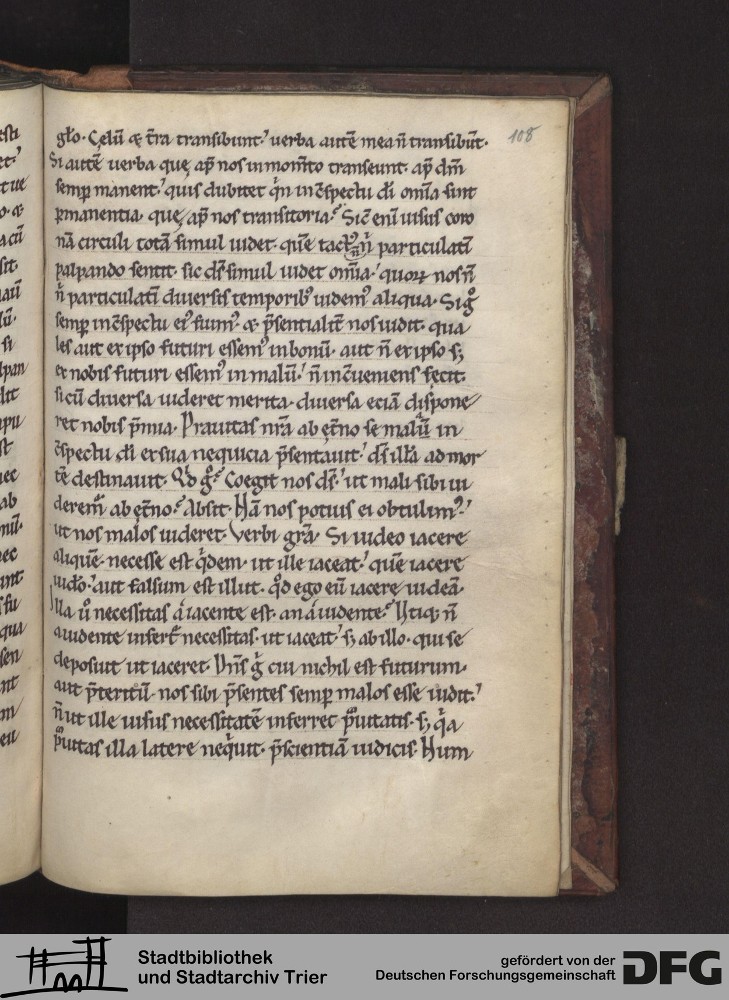 108
gło. Celū & t̄ra transibunt.' uerba autē mea n̄ transibūt.
Si autē uerba quę ap̄ nos in mom̄to transeunt. ap̄ dm̄
semꝑ manent.' quis dubitet qͥn in ↄspectu dī om̄ia sint
ꝑmanentia. quę ap̄ nos transitoria.' Sic̄ enī uisus coro
nā circuli totā simul uidet. quē tactꝰ n̄ nͥ particulatī
palpando sentit. sic dc̄ simul uidet om̄ia.' quoꝝ nos n̄
nͥ particulatī diuersis temporibꝰ uidemꝰ aliqua. Si gͦ
semꝑ in ↄspectu eiꝰ fiumꝰ. & p̄sentialit̄ nos uidit. qua
les aut ex ipso futuri essemꝰ in bonū. aut n̄ ex ipso sꝫ
ex nobis futuri essemꝰ in malū.' n̄ inↄueniens fecit.
si cū diuersa uideret merita. diuersa eciā dispone
ret nobis p̄mia. Prauitas nr̄a ab et̄no se malū in
ↄspectu dī ex sua nequicia p̄sentauit.' ds̄ illā ad mor
tē destinauit. Qͥd gͦ.' Coegit nos ds̄.' ut mali sibi ui
deremͬ ab et̄no.' Absit. Nā nos potius ei obtulimꝰ.'
ut nos malos uideret. Verbi grā. Si uideo iacere
aliquē. necesse est qͥdem. ut ille iaceat.' quē iacere
uideo.' aut falsum est illut. qͦd ego eū iacere uideā.
Illa uͦ necessitas á iacente est. an á uidente.' Utiqꝫ n̄
a uidente infert̄ necessitas. ut iaceat.' sꝫ ab illo. qui se
deposuit ut iaceret. Dn̄s gͥ cui nichil est futurum.
aut p̄teritū. nos sibi p̄sentes semꝑ malos esse uidit.'
n̄ ut ille uisus necessitatē inferret pͣuitatis. sꝫ qͥa
pͣuitas illa latere neqͥuit. p̄scientiā iudicis. Num
Stadtbibliothek
und Stadtarchiv Trier
gefördert von der
Deutschen Forschungsgemeinschaft
DFG